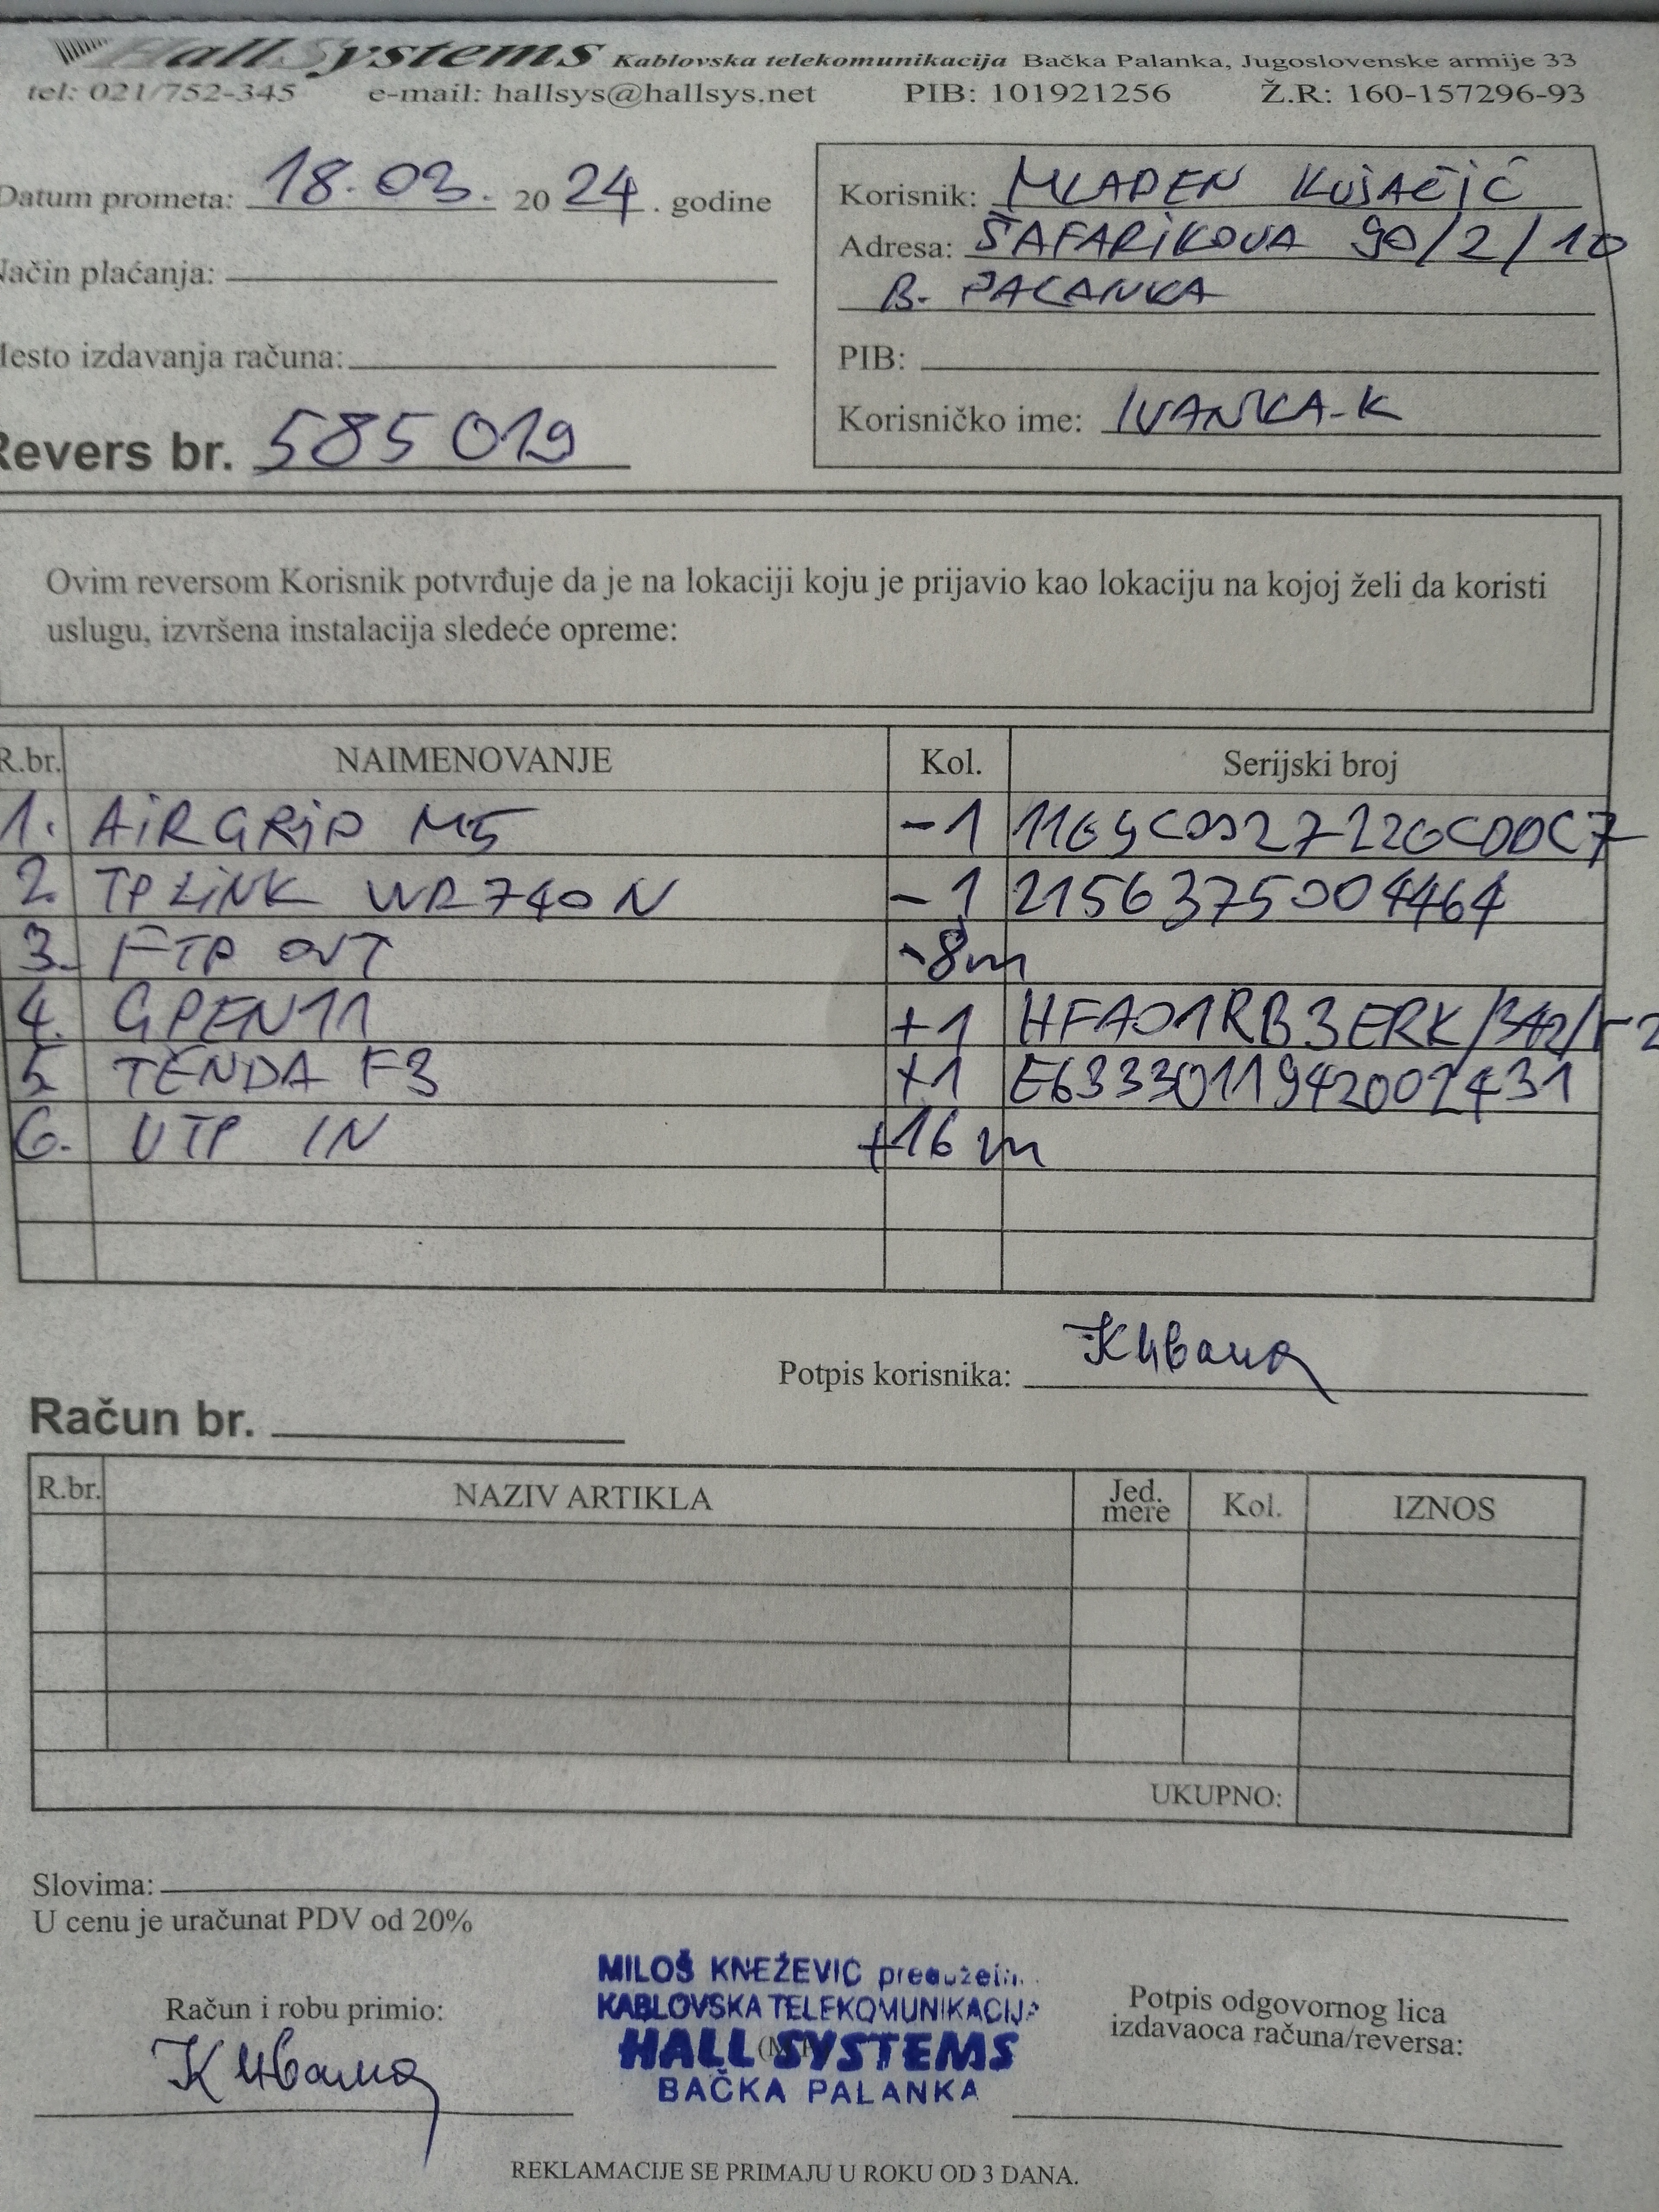 HallSystems Kablovska telekomunikacija Bačka Palanka, Jugoslovenske armije 33
tel: 021/752-345 e-mail: hallsys@hallsys.net PIB: 101921256 Ž.R: 160-157296-93
Datum prometa: 18.03. 2024. godine
Način plaćanja:
Mesto izdavanja računa:
Revers br. 585019
Korisnik: MLADEN KUJAČIĆ
Adresa: ŠAFARIKOVA 90/2/10
B. PALANKA
PIB:
Korisničko ime: IVANKA-K
Ovim reversom Korisnik potvrđuje da je na lokaciji koju je prijavio kao lokaciju na kojoj želi da koristi
uslugu, izvršena instalacija sledeće opreme:
R.br. NAIMENOVANJE Kol. Serijski broj
1. AIRGRID M5 -1
2. TPLINK WR740N -1 2156375004464
3. FTP OUT -8m
4. GPEN11 +1 HFA01RB3ERK/342/r2
5. TENDA F3 +1 E6333011942002431
6. UTP IN +16 m
Potpis korisnika: К Ивана
Račun br.
R.br. NAZIV ARTIKLA Jed. mere Kol. IZNOS
UKUPNO:
Slovima:
U cenu je uračunat PDV od 20%
Račun i robu primio:
К Ивана
MILOŠ KNEŽEVIĆ preduzetn.
KABLOVSKA TELEKOMUNIKACIJA
HALL SYSTEMS
BAČKA PALANKA
Potpis odgovornog lica
izdavaoca računa/reversa:
REKLAMACIJE SE PRIMAJU U ROKU OD 3 DANA.